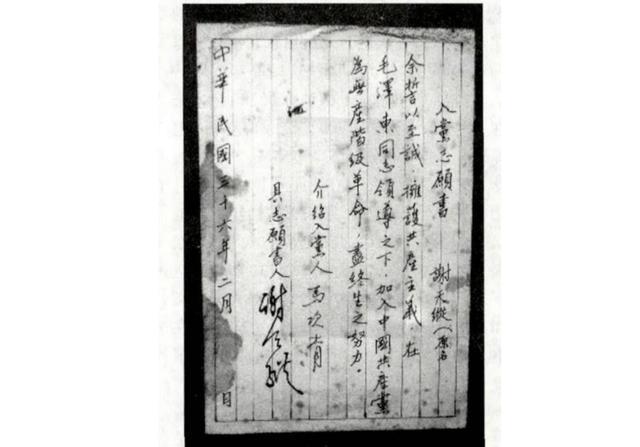 入黨志願書 謝天縱(原名
余誓以至誠.擁護共產主義.在
毛澤東同志領導之下.加入中國共產黨
為無產階級革命,盡終生之努力.
介紹入黨人
具志願書人
中華民國三十六年二月 日